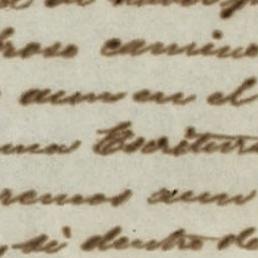 broso camino
aun en el
una Escritura
remos aun
si dentro de